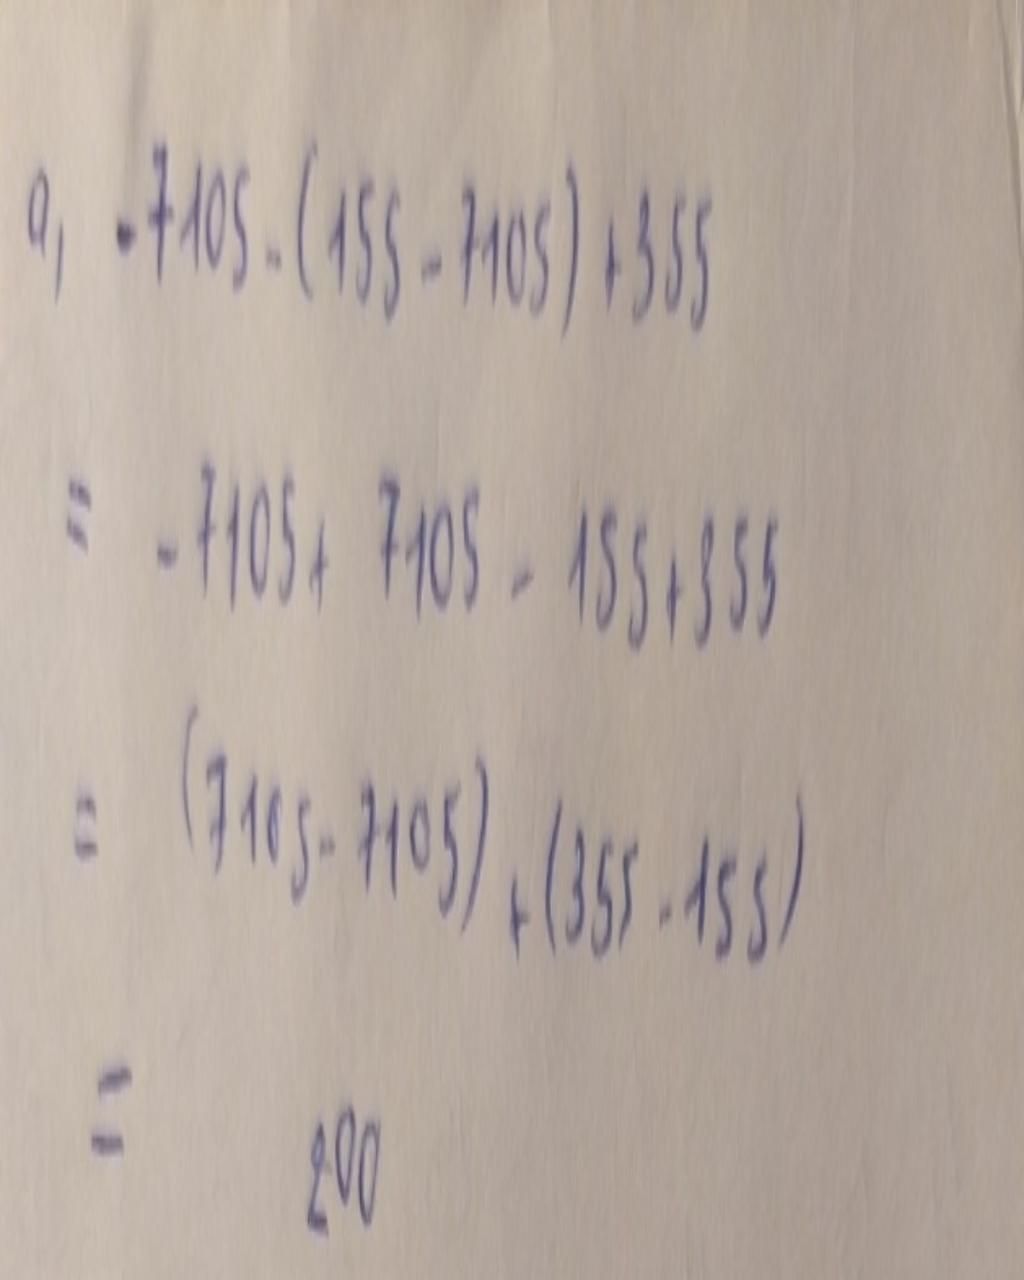 a, -7105-(155-7105)+355
= -7105+ 7105 - 155+355
= (7105-7105)+(355-155)
= 200